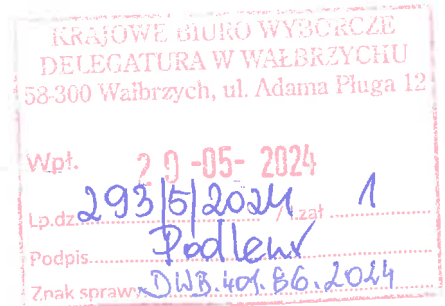 KRAJOWE BIURO WYBORCZE
DELEGATURA W WAŁBRZYCHU
58-300 Wałbrzych, ul. Adama Pługa 12
Wpł. 20-05-2024
L.p.dz. 293/5/2024 / l.zał 1
Podpis
Znak sprawy DWB.401.86.2024